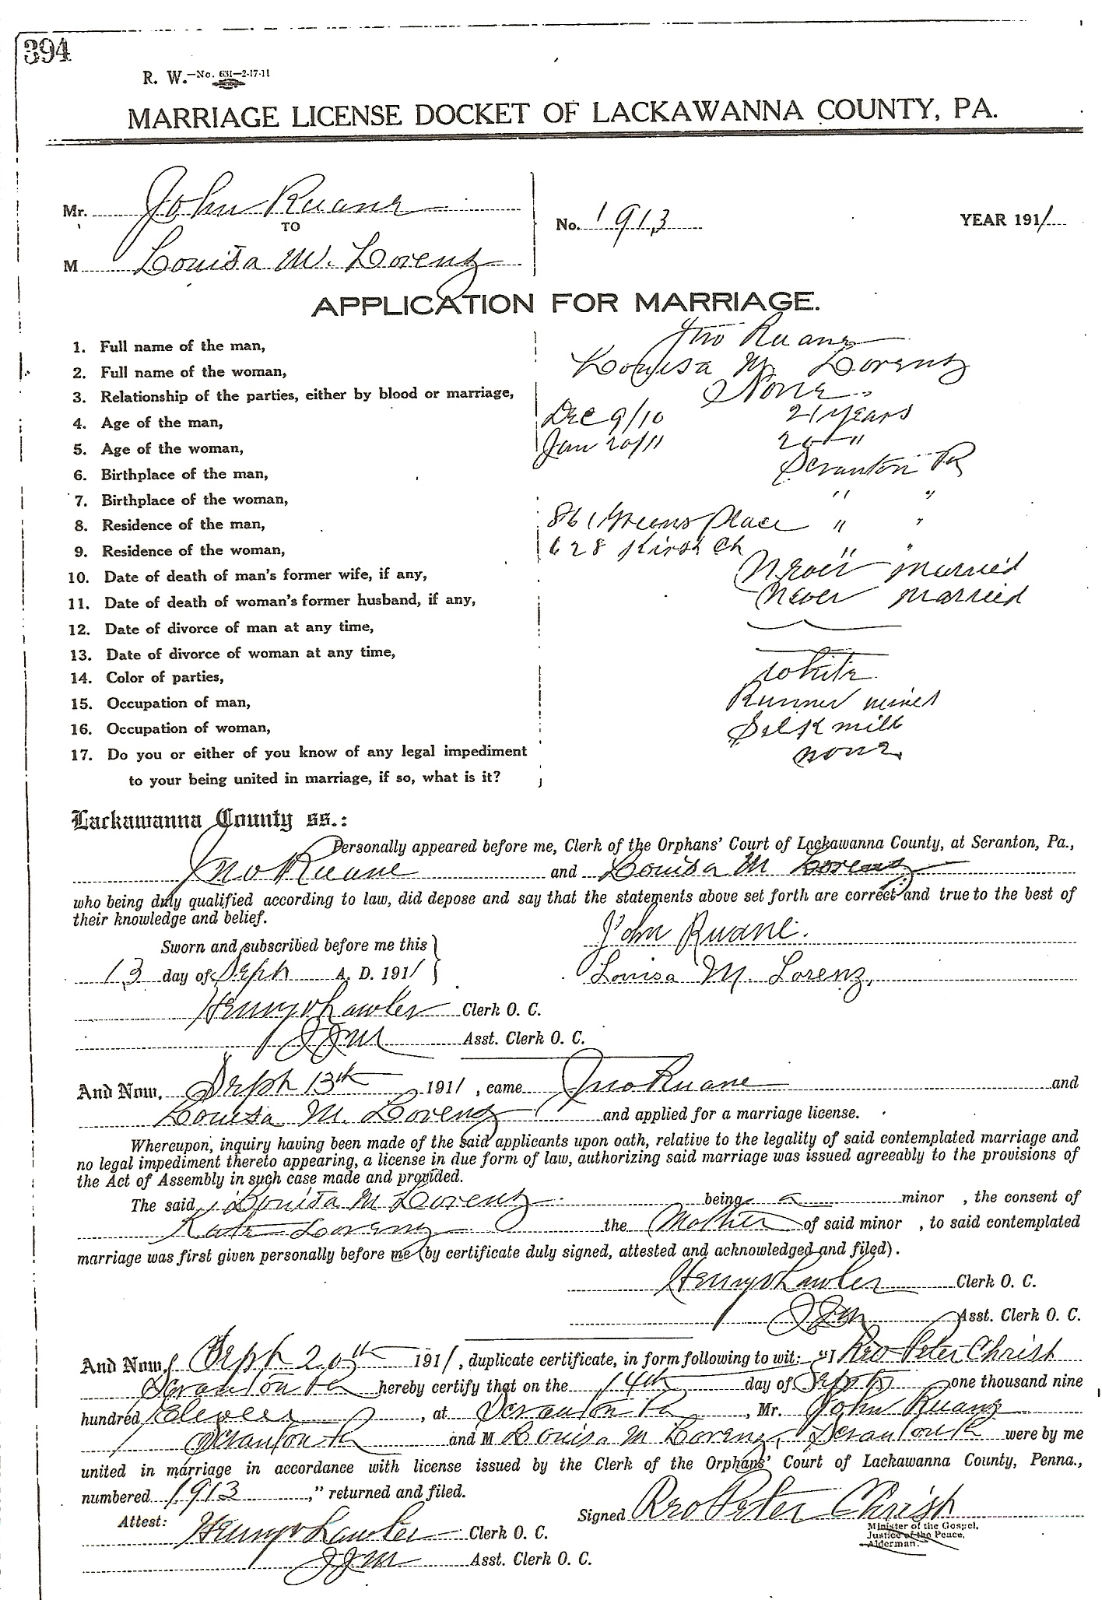 394
R. W.—No. 631—2-17-11
MARRIAGE LICENSE DOCKET OF LACKAWANNA COUNTY, PA.
Mr. John Ruane
TO
M Louisa M. Lorenz
No. 1913
YEAR 1911
APPLICATION FOR MARRIAGE.
1. Full name of the man, Jno Ruane
2. Full name of the woman, Louisa M Lorenz
3. Relationship of the parties, either by blood or marriage, None
4. Age of the man, Dec 9/10 21 years
5. Age of the woman, Jan 20/11 20 "
6. Birthplace of the man, Scranton Pa
7. Birthplace of the woman, " "
8. Residence of the man, 861 Greens Place " "
9. Residence of the woman, 628 Kirst Ct " "
10. Date of death of man's former wife, if any, Never married
11. Date of death of woman's former husband, if any, Never married
12. Date of divorce of man at any time,
13. Date of divorce of woman at any time,
14. Color of parties, White
15. Occupation of man, Runner mines
16. Occupation of woman, Silk mill
17. Do you or either of you know of any legal impediment none
to your being united in marriage, if so, what is it?
Lackawanna County ss.:
Personally appeared before me, Clerk of the Orphans' Court of Lackawanna County, at Scranton, Pa.,
Jno Ruane and Louisa M Lorenz
who being duly qualified according to law, did depose and say that the statements above set forth are correct and true to the best of
their knowledge and belief.
Sworn and subscribed before me this
John Ruane.
13 day of Sept A. D. 1911
Louisa M. Lorenz,
Henry Lawler Clerk O. C.
JJM Asst. Clerk O. C.
And Now, Sept 13th 1911, came Jno Ruane and
Louisa M. Lorenz and applied for a marriage license.
Whereupon, inquiry having been made of the said applicants upon oath, relative to the legality of said contemplated marriage and
no legal impediment thereto appearing, a license in due form of law, authorizing said marriage was issued agreeably to the provisions of
the Act of Assembly in such case made and provided.
The said Louisa M Lorenz being a minor, the consent of
Kate Lorenz the Mother of said minor, to said contemplated
marriage was first given personally before me (by certificate duly signed, attested and acknowledged and filed).
Henry Lawler Clerk O. C.
JJM Asst. Clerk O. C.
And Now, Sept 20th 1911, duplicate certificate, in form following to wit: "I Rev Peter Christ
Scranton Pa hereby certify that on the 14th day of Sept one thousand nine
hundred Eleven, at Scranton Pa, Mr. John Ruane
Scranton Pa and M Louisa M Lorenz, Scranton Pa were by me
united in marriage in accordance with license issued by the Clerk of the Orphans' Court of Lackawanna County, Penna.,
numbered 1913," returned and filed.
Signed Rev Peter Christ
Minister of the Gospel,
Justice of the Peace,
Alderman.
Attest: Henry Lawler Clerk O. C.
JJM Asst. Clerk O. C.